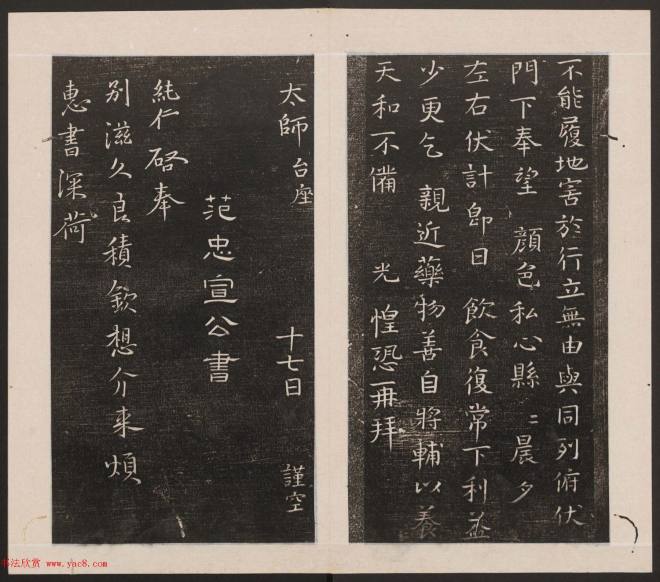 不能履地害於行立無由與同列俯伏
門下奉望 顏色私心縣〻晨夕
左右伏計即日 飲食復常下利益
少更乞 親近藥物善自將輔以養
天和不備 光 惶恐再拜
太師台座 十七日 謹空
范忠宣公書
純仁啓奉
別滋久良積欽想介来煩
惠書深荷
书法欣赏 www.yac8.com